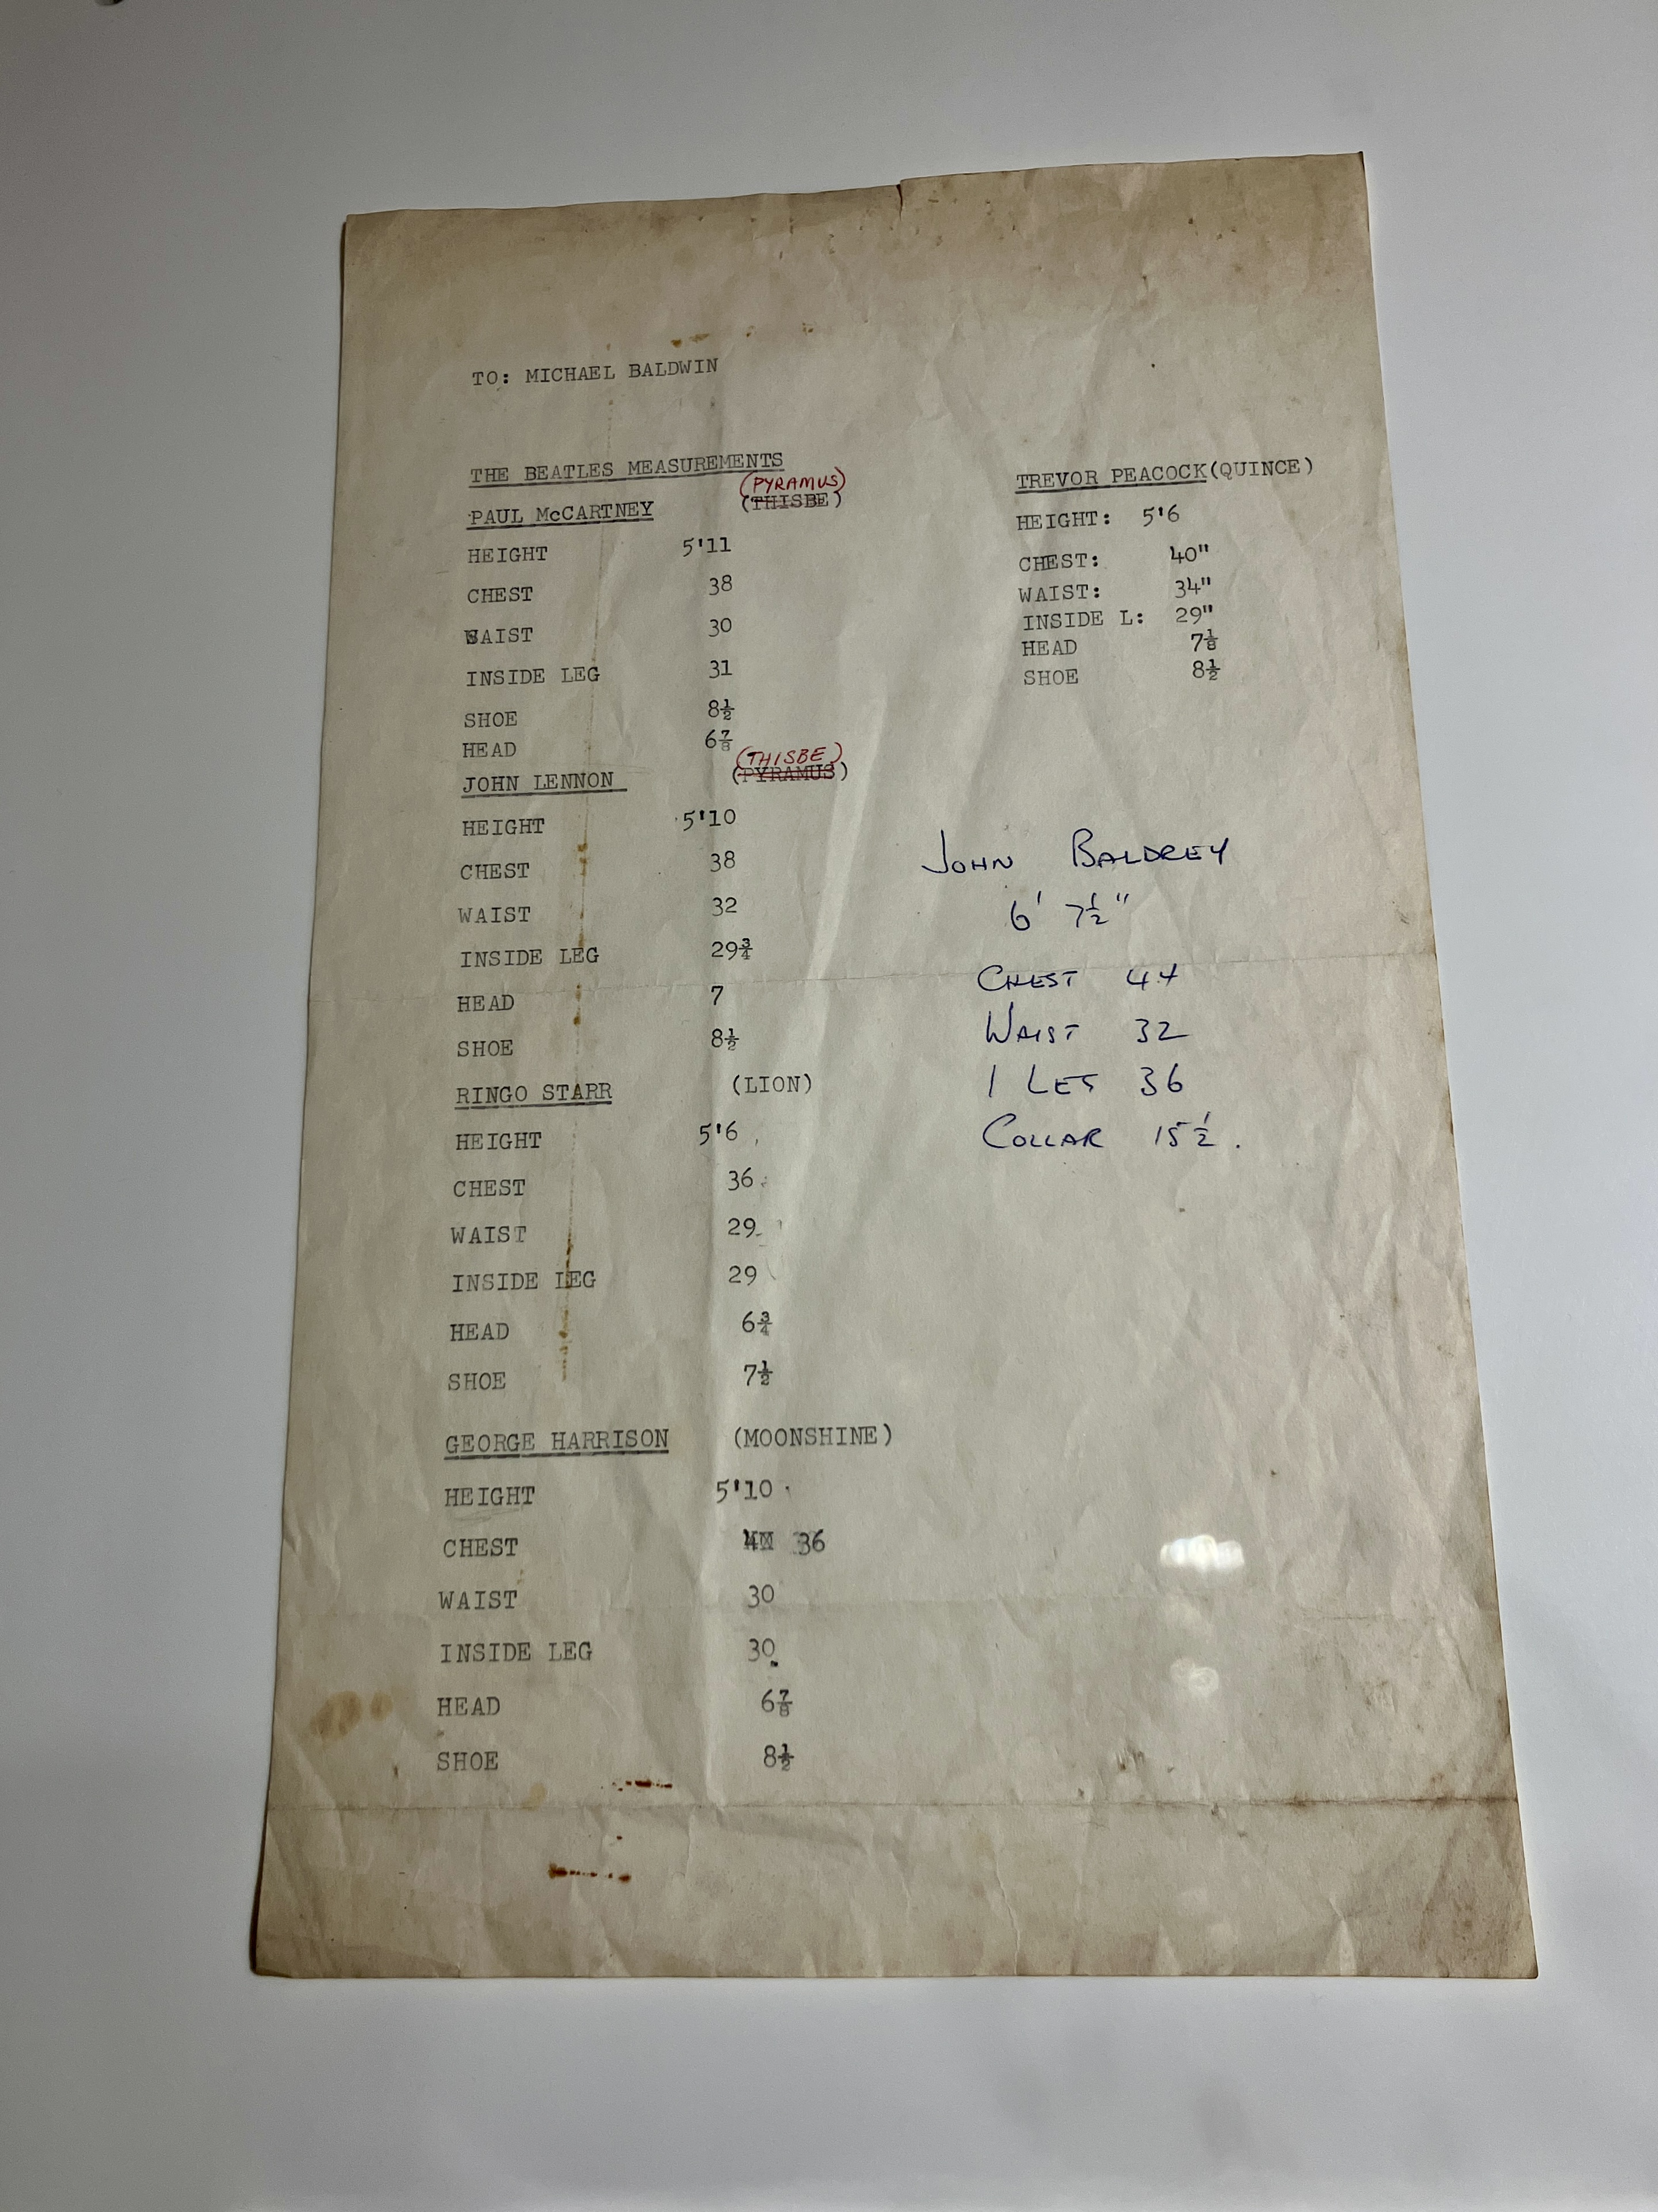 TO: MICHAEL BALDWIN
THE BEATLES MEASUREMENTS
(PYRAMUS)
PAUL McCARTNEY (THISBE)
HEIGHT 5'11
CHEST 38
WAIST 30
INSIDE LEG 31
SHOE 8½
HEAD 6⅞
(THISBE)
JOHN LENNON (PYRAMUS)
HEIGHT 5'10
CHEST 38
WAIST 32
INSIDE LEG 29¾
HEAD 7
SHOE 8½
RINGO STARR (LION)
HEIGHT 5'6
CHEST 36
WAIST 29
INSIDE LEG 29
HEAD 6¾
SHOE 7½
GEORGE HARRISON (MOONSHINE)
HEIGHT 5'10
CHEST 36
WAIST 30
INSIDE LEG 30
HEAD 6⅞
SHOE 8½
TREVOR PEACOCK (QUINCE)
HEIGHT: 5'6
CHEST: 40"
WAIST: 34"
INSIDE L: 29"
HEAD 7⅛
SHOE 8½
JOHN BALDREY
6' 7½"
CHEST 44
WAIST 32
I LEG 36
COLLAR 15½.